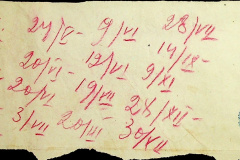 24/V- 9/VI 28/VII
20/VI- 12/VI 14/IX-
20/VI 19/XII 9/XI
3/VII 20/III 24/XII-
30/XII